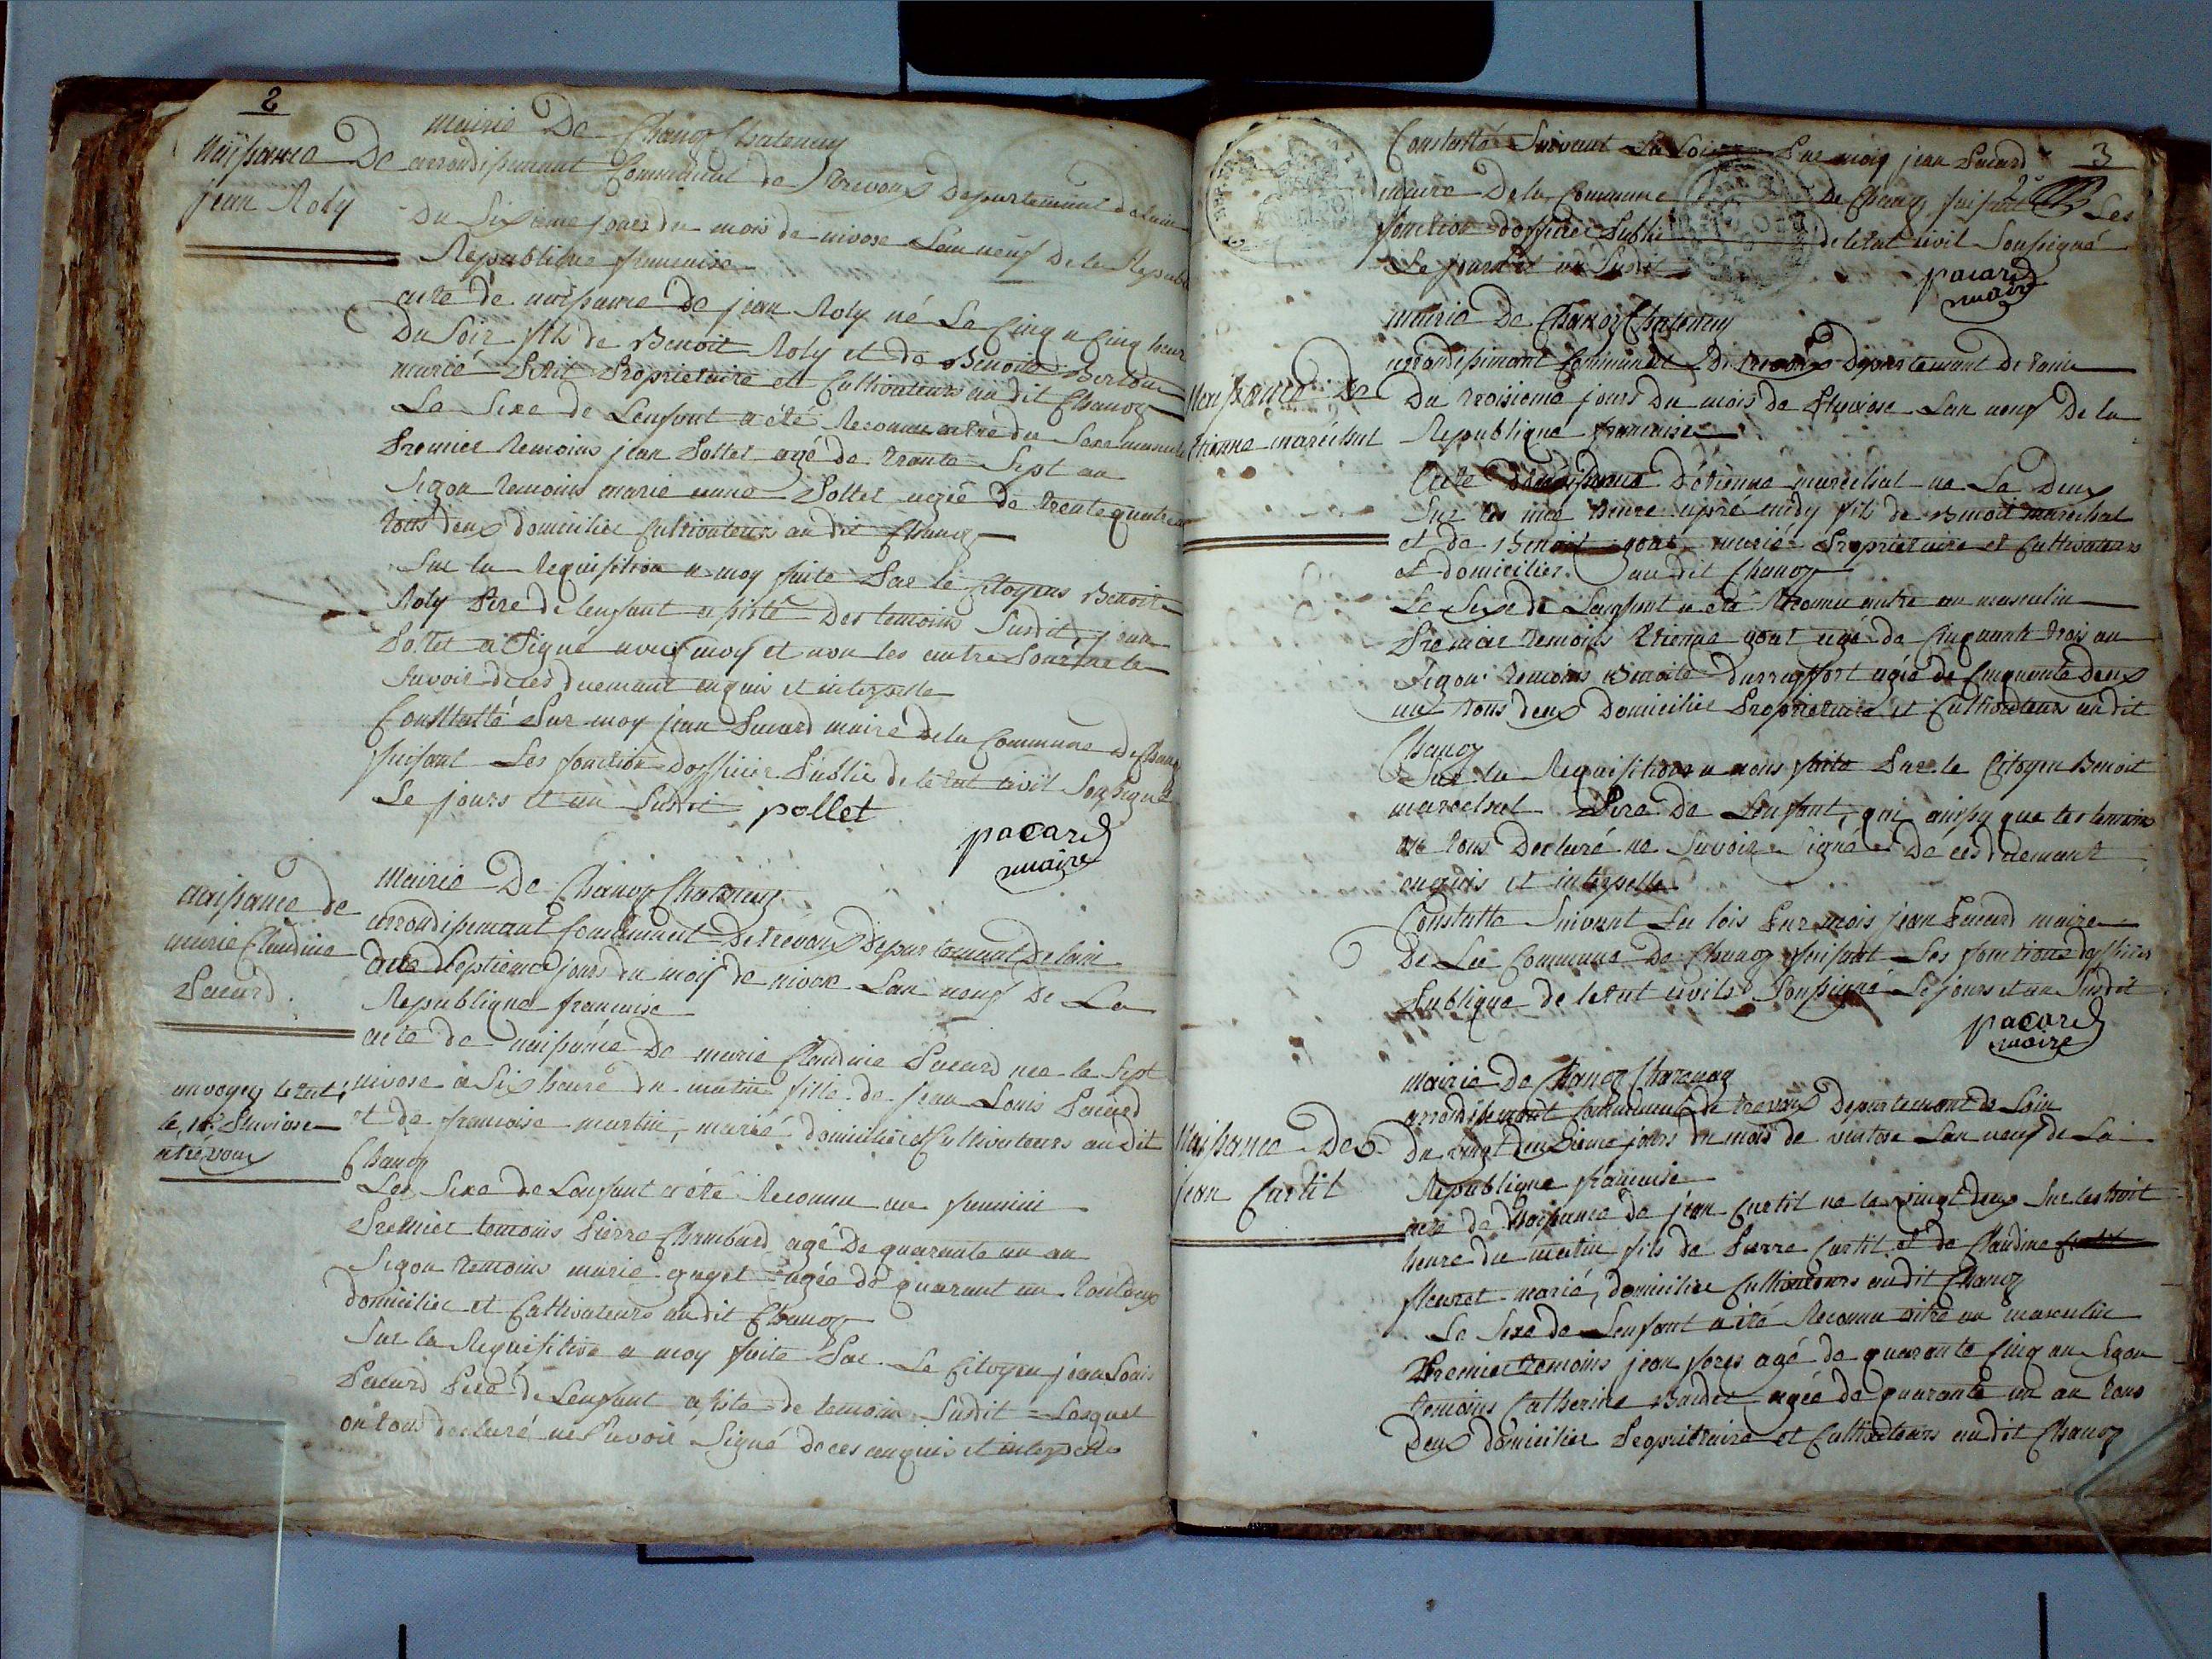 2
naissance De
jean Roly
mairie De Chanoz Chatenay
arrondissement Communal de Trevoux Departement de lain
Du Sixieme jours du mois de nivose Lan neuf De la Republi
Republique francaise
acte de naissance de jean Roly né Le Cinq a Cinq heur
Du Soir fils de Benoit Roly et de Benoite
marié Petit Proprietaire et Cultivateurs audit Chanoz
Le Sexe de Lenfant a été Reconnu entre du Sexe masculin
Premier temoins jean Pollet agé de trante Sept an
Segon temoins marie anne Pollet agée de trente quatre an
tous deux domicilier Cultivateurs au dit Chanoz
Sur la Requisition a moy faite Par le Citoyens Benoit
Roly Pere de lenfant assisté Des temoins Susdit, jean
Pollet a Signé avec moy et non les autre Pour ne le
Savoir de ces duemant enquis et interpelle
Constatté Par moy jean Pacard maire de la Commune de Chanoz
faisant Les fonction dofficier Public de letat civil Soussigné
Le jours et an Susdit pollet
pacard
maire
naissance de
marie Claudine
Pacard.
mairie De Chanoz Chatenay
arrondissemant Communal De trevoux Departemant De lain
Septieme jours du mois de nivose Lan neuf De La
Republique francaise
acte de naissance De marie Claudine Pacard nee le Sept
nivose a Six heure du matin fille de jean Louis Pacard
et de francoise martin, marié domicilier et Cultivateurs audit
Chanoz
envoyez letat
le 1er Pluviose
a trévoux
Les Sexe de Lenfant a été Reconnu au feminin
Premier temoins Pierre Chambard agé De quarante un an
Segon temoins marie guyet agée de quarant un toutdeux
domicilier et Cultivateurs audit Chanoz
Sur la Requisition a moy faite Par Le Citoyen jean Louis
Pacard Pere de Lenfant assiste de temoins Susdit = Lesquel
on tous declaré ne Savoir Signé de ces enquis et interpelle
3
Constatté Suivant La Loi Par moy jean Pacard
maire De la Commune De Chanoz faisant Les
fonction dofficier Public de letat civil Soussigné
Le jours et an Susdit
pacard
maire
mairie De Chanoz Chatenay
arrondissimant Communal De trevoux Departemant De lain
Naissance De
Etienne maréchal
Du troisieme jours Du mois de Pluviose Lan neuf De la
Republique francaise
Acte De naissance Détienne maréchal ne Le Deux
Sur les une heure apré midy fils de Benoit marechal
et de Benoit gout marié Proprietaire et Cultivateurs
et domicilier audit Chanoz
Le Sexe De Lenfant a été Reconnu entre au masculin
Premier temoins Etienne gout agé de Cinquante trois an
Segon temoins Benoite agée de Cinquante Deux
an tous deux Domicilier Proprietaire et Cultivateurs audit
Chanoz
Sur la Requisition a nous faite Par le Citoyen Benoit
marechal Pere De Lenfant, qui aussy que les temoins
ont tous Declaré ne Savoir Signé De ces duemant
enquis et interpelle
Constatte Suivant La lois Par mois jean Pacard maire
De La Commune De Chanoz faisant Les fonctions dofficier
Publique de letat civils Soussigné Le jours et an Susdit
pacard
maire
mairie de Chanoz Chatenay
arrondissemant Communal de trevoux Departement de Lain
Naissance De
jean Curtil
Du vingt deuxieme jours du mois de ventose Lan neuf de La
Republique francaise
acte de Naissance de jean Curtil ne le vingt deux Sur les huit
heure du matin fils de Pierre Curtil et de Claudine
fleuret marié, domicilier Cultivateurs audit Chanoz
Le Sexe de Lenfant a été Reconnu aitre au masculin
Premier temoins jean agé de quarante Cinq an Segon
temoins Catherine agée de quarante un an tous
Deux domicilier Proprietaire et Cultivateurs audit Chanoz